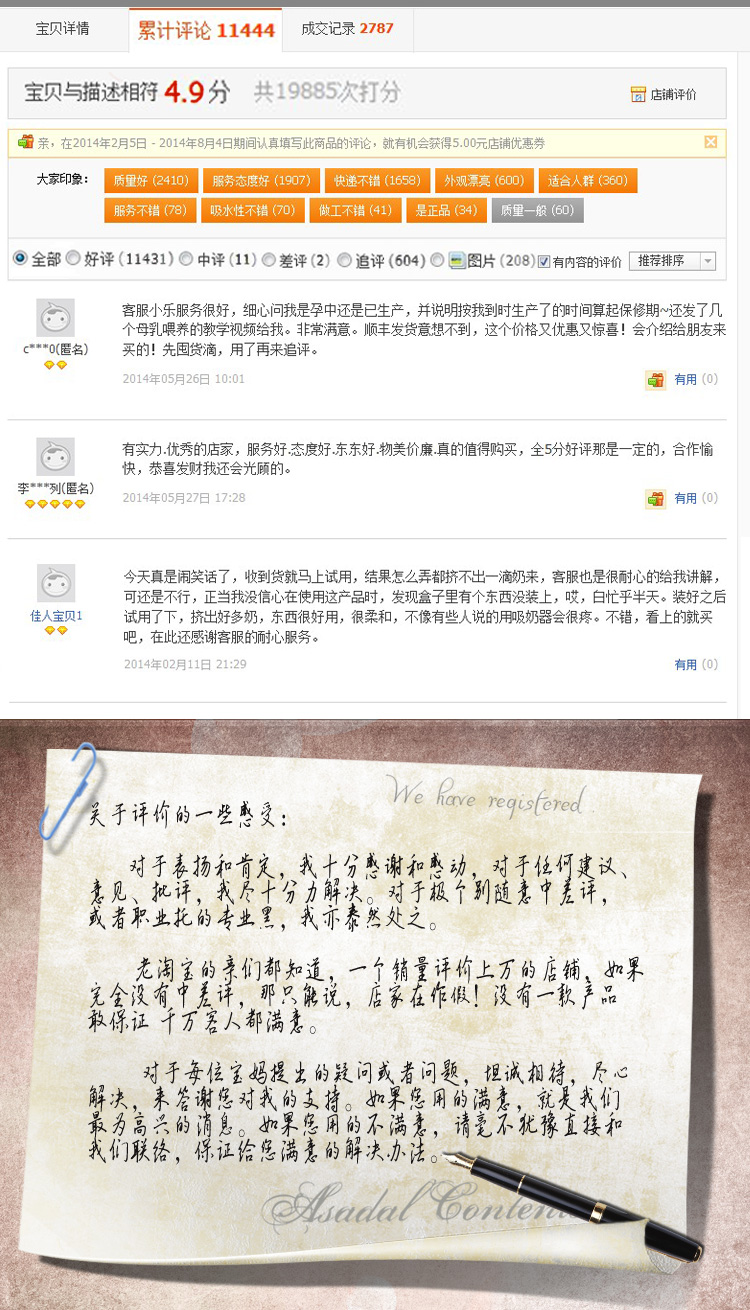 宝贝详情
累计评论 11444
成交记录 2787
宝贝与描述相符 4.9分 共19885次打分
店铺评价
亲，在2014年2月5日 - 2014年8月4日期间认真填写此商品的评论，就有机会获得5.00元店铺优惠券
大家印象：
质量好 (2410) 服务态度好 (1907) 快递不错 (1658) 外观漂亮 (600) 适合人群 (360)
服务不错 (78) 吸水性不错 (70) 做工不错 (41) 是正品 (34) 质量一般 (60)
全部 好评 (11431) 中评 (11) 差评 (2) 追评 (604) 图片 (208) 有内容的评价 推荐排序
客服小乐服务很好，细心问我是孕中还是已生产，并说明按我到时生产了的时间算起保修期~还发了几
个母乳喂养的教学视频给我。非常满意。顺丰发货意想不到，这个价格又优惠又惊喜！会介绍给朋友来
买的！先囤货滴，用了再来追评。
c***0(匿名)
2014年05月26日 10:01
有用 (0)
有实力.优秀的店家，服务好.态度好.东东好.物美价廉.真的值得购买，全5分好评那是一定的，合作愉
快，恭喜发财我还会光顾的。
李***列(匿名)
2014年05月27日 17:28
有用 (0)
今天真是闹笑话了，收到货就马上试用，结果怎么弄都挤不出一滴奶来，客服也是很耐心的给我讲解，
可还是不行，正当我没信心在使用这产品时，发现盒子里有个东西没装上，哎，白忙乎半天。装好之后
试用了下，挤出好多奶，东西很好用，很柔和，不像有些人说的用吸奶器会很疼。不错，看上的就买
吧，在此还感谢客服的耐心服务。
佳人宝贝1
2014年02月11日 21:29
有用 (0)
We have registered
关于评价的一些感受：
对于表扬和肯定，我十分感谢和感动，对于任何建议、
意见、批评，我尽十分力解决。对于极个别随意中差评，
或者职业托的专业黑，我亦泰然处之。
老淘宝的亲们都知道，一个销量评价上万的店铺，如果
完全没有中差评，那只能说，店家在作假！没有一款产品
敢保证 千万客人都满意。
对于每位宝妈提出的疑问或者问题，坦诚相待，尽心
解决，来答谢您对我的支持。如果您用的满意，就是我们
最为高兴的消息。如果您用的不满意，请毫不犹豫直接和
我们联络，保证给您满意的解决办法。
Asadal Contents